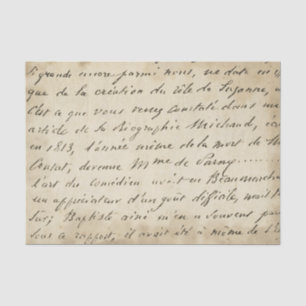 si grande encore parmi nous, ne date en
que de la création du rôle de Suzanne,
C'est ce que vous verrez constaté dans un
article de la Biographie Michaud,
en 1813, l'année même de la mort de
Contat, devenue Mme de Parny......
l'art du comédien avait en Beaumarchais
un appréciateur d'un goût difficile, mais
sûr; Baptiste aîné m'en a souvent
sous ce rapport, il avait été à même de